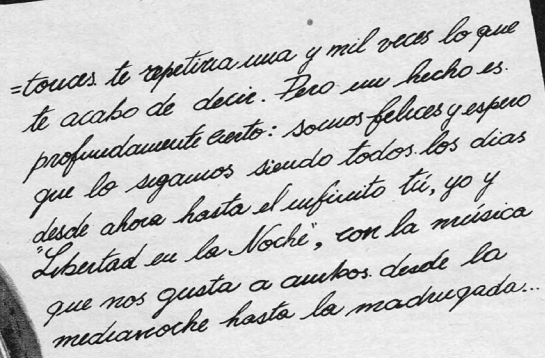 =tonces te repetiria una y mil veces lo que
te acabo de decir. Pero un hecho es
profundamente cierto: somos felices y espero
que lo sigamos siendo todos los dias
desde ahora hasta el infinito tú, yo y
"Libertad en la Noche", con la música
que nos gusta a ambos desde la
medianoche hasta la madrugada...